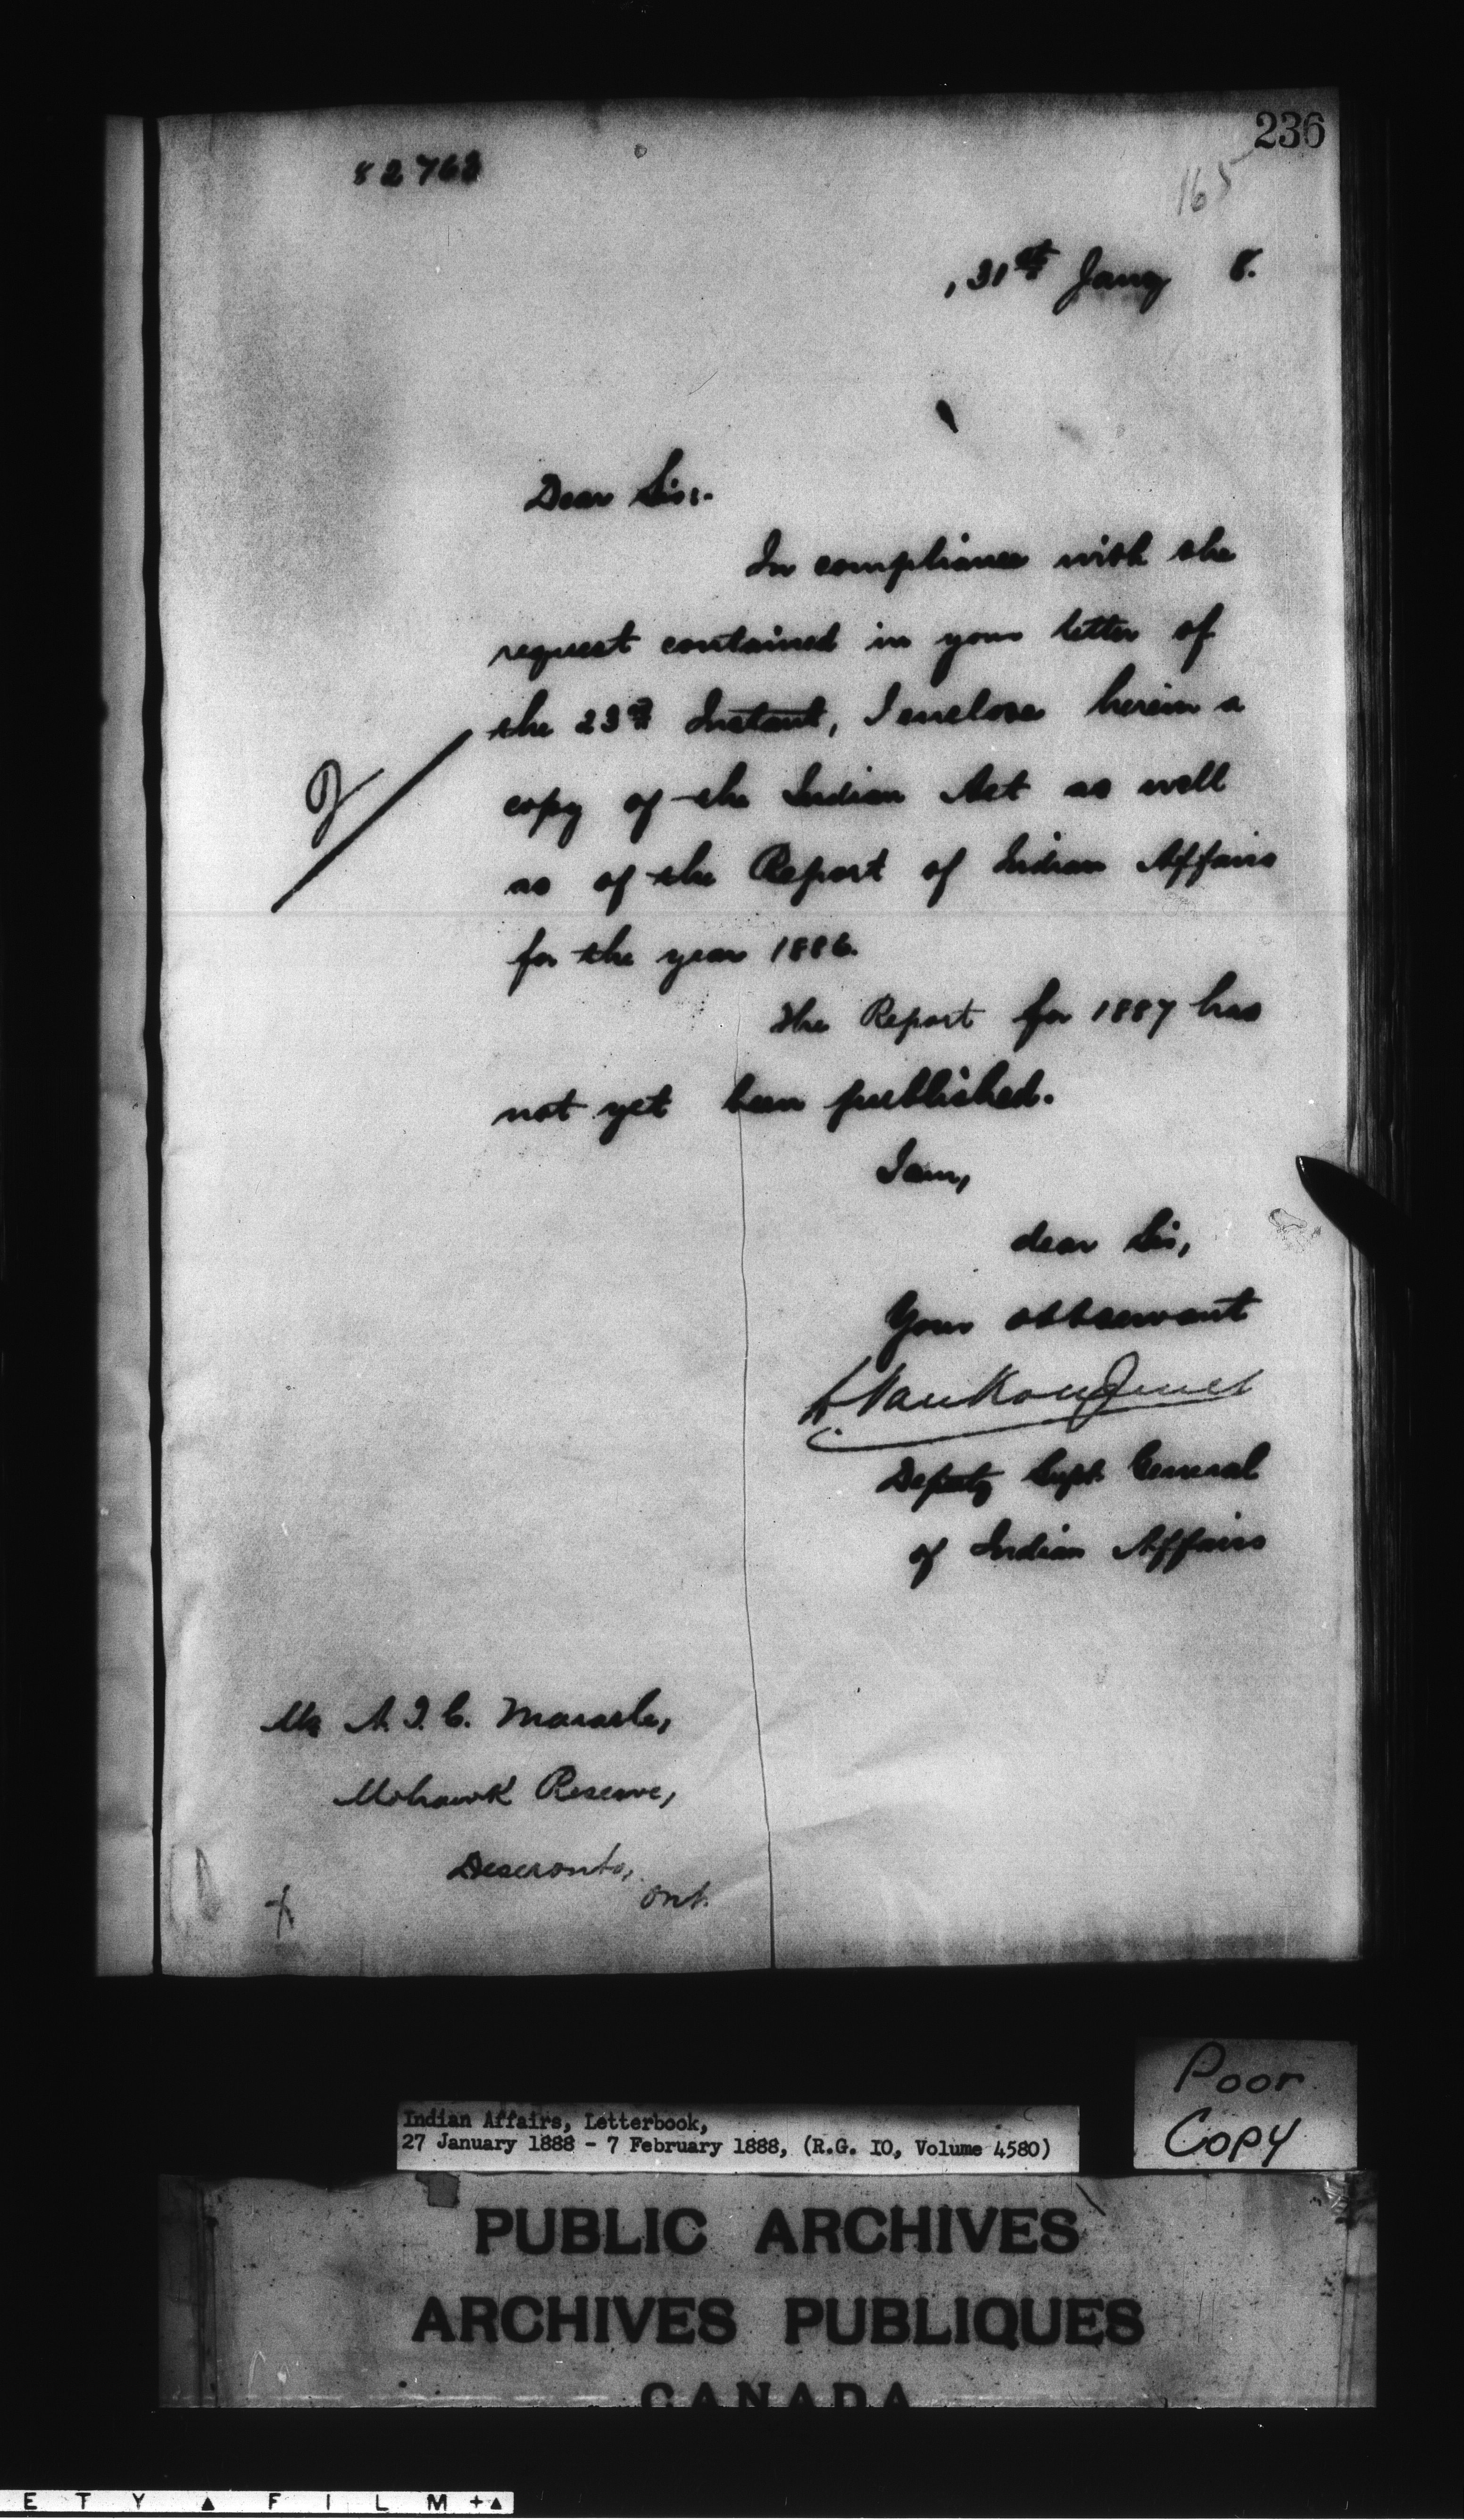 236
82763
165
31st Jany 8.
Dear Sir:-
In compliance with the
request contained in your letter of
the 23rd Instant, I enclose herein a
copy of the Indian Act as well
as of the Report of Indian Affairs
for the year 1886.
The Report for 1887 has
not yet been published.
I am,
dear Sir,
Your obt servant
L. VanKoughnet
Deputy Supt. General
of Indian Affairs
Mr A. J. C. Maracle,
Mohawk Reserve,
Deseronto,
Ont.
Poor
Copy
Indian Affairs, Letterbook,
27 January 1888 - 7 February 1888, (R.G. IO, Volume 4580)
PUBLIC ARCHIVES
ARCHIVES PUBLIQUES
CANADA
E T Y ▲ F I L M +▲